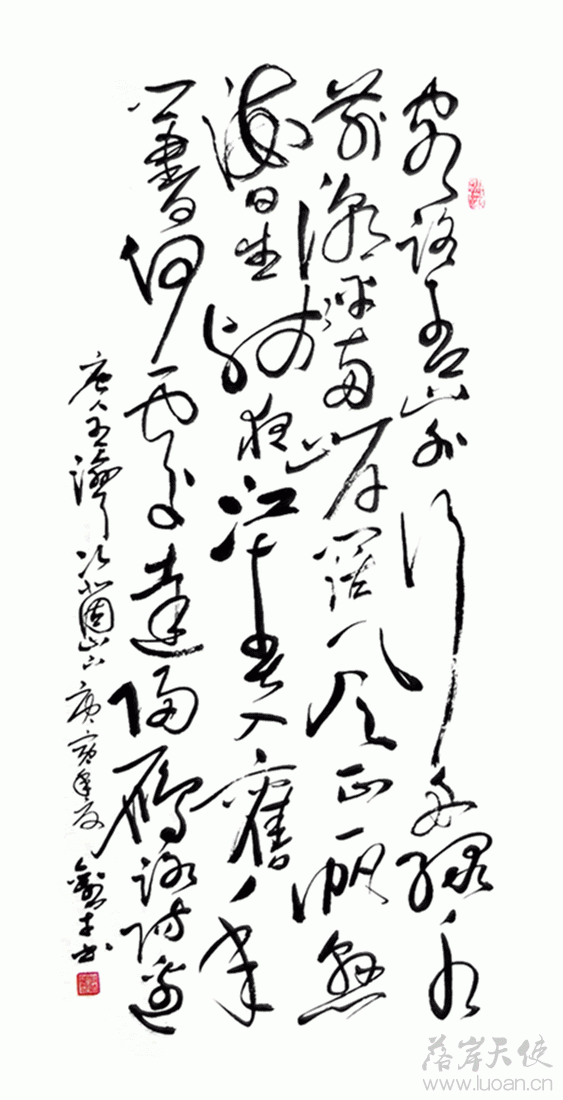 客路青山外行舟綠水
前潮平兩岸闊風正一帆懸
海日生殘夜江春入舊年
鄉書何處達歸雁洛陽邊
唐人王灣次北固山下 庚寅年夏 書
落岸天使
www.luoan.cn